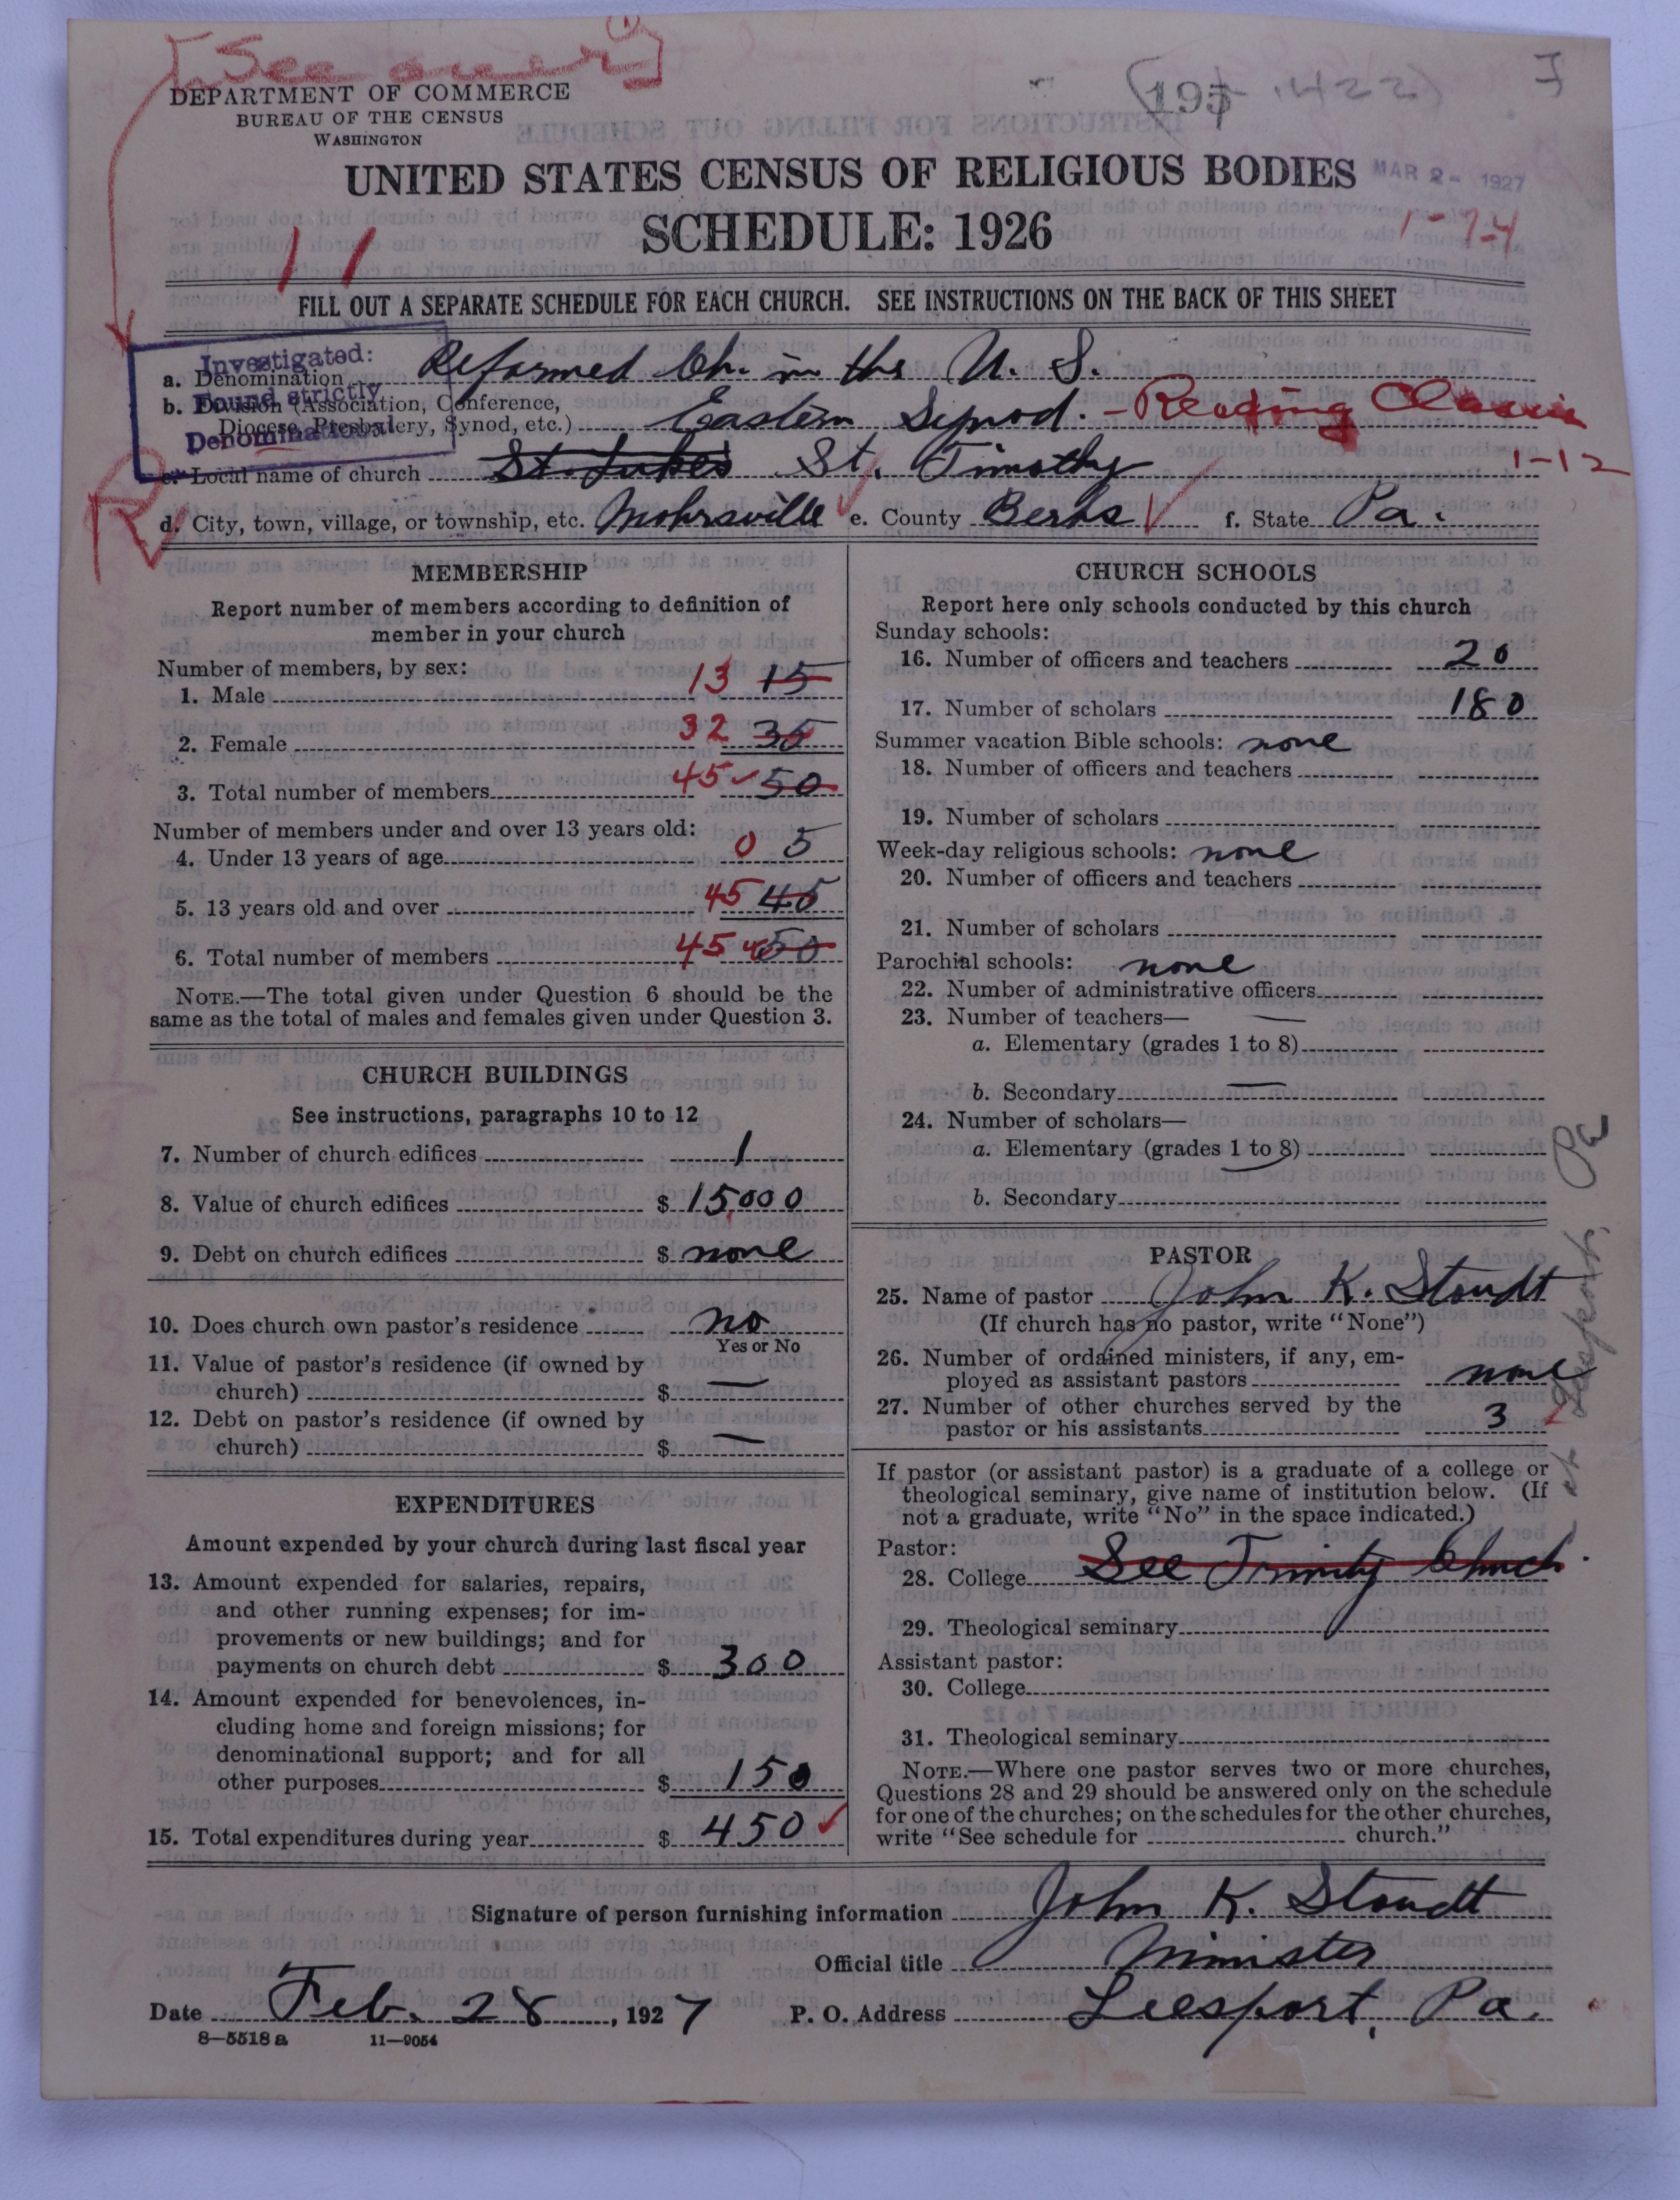 [See over]
(195-1422) I
DEPARTMENT OF COMMERCE
BUREAU OF THE CENSUS
WASHINGTON
UNITED STATES CENSUS OF RELIGIOUS BODIES
MAR 2- 1927
SCHEDULE: 1926
1-7-4
11
FILL OUT A SEPARATE SCHEDULE FOR EACH CHURCH. SEE INSTRUCTIONS ON THE BACK OF THIS SHEET
Investigated:
Found strictly
Denominational
a. Denomination Reformed Ch. in the U. S.
b. Division (Association, Conference,
Diocese, Presbytery, Synod, etc.) Eastern Synod. - Reading Classis
1-12
c. Local name of church St. Lukes St. Timothy
R
d. City, town, village, or township, etc. Mohrsville e. County Berks f. State Pa.
MEMBERSHIP
Report number of members according to definition of
member in your church
Number of members, by sex:
1. Male 13 15
2. Female 32 35
3. Total number of members 45 50
Number of members under and over 13 years old:
4. Under 13 years of age 0 5
5. 13 years old and over 45 45
6. Total number of members 45 50
NOTE.—The total given under Question 6 should be the
same as the total of males and females given under Question 3.
CHURCH BUILDINGS
See instructions, paragraphs 10 to 12
7. Number of church edifices 1
8. Value of church edifices $ 15,000
9. Debt on church edifices $ none
10. Does church own pastor's residence no
Yes or No
11. Value of pastor's residence (if owned by
church) $ —
12. Debt on pastor's residence (if owned by
church) $ —
EXPENDITURES
Amount expended by your church during last fiscal year
13. Amount expended for salaries, repairs,
and other running expenses; for im-
provements or new buildings; and for
payments on church debt $ 300
14. Amount expended for benevolences, in-
cluding home and foreign missions; for
denominational support; and for all
other purposes $ 150
15. Total expenditures during year $ 450
CHURCH SCHOOLS
Report here only schools conducted by this church
Sunday schools:
16. Number of officers and teachers 20
17. Number of scholars 180
Summer vacation Bible schools: none
18. Number of officers and teachers
19. Number of scholars
Week-day religious schools: none
20. Number of officers and teachers
21. Number of scholars
Parochial schools: none
22. Number of administrative officers
23. Number of teachers— —
a. Elementary (grades 1 to 8)
b. Secondary —
24. Number of scholars—
a. Elementary (grades 1 to 8)
b. Secondary
PASTOR
25. Name of pastor John K. Stoudt
(If church has no pastor, write "None")
26. Number of ordained ministers, if any, em-
ployed as assistant pastors none
27. Number of other churches served by the
pastor or his assistants 3
at Leesport,
If pastor (or assistant pastor) is a graduate of a college or
theological seminary, give name of institution below. (If
not a graduate, write "No" in the space indicated.)
Pastor:
28. College See Trinity Church.
29. Theological seminary
Assistant pastor:
30. College
31. Theological seminary
NOTE.—Where one pastor serves two or more churches,
Questions 28 and 29 should be answered only on the schedule
for one of the churches; on the schedules for the other churches,
write "See schedule for church."
Signature of person furnishing information John K. Stoudt
Official title Minister
Date Feb. 28, 1927 P. O. Address Leesport, Pa.
8—5518a 11—9054